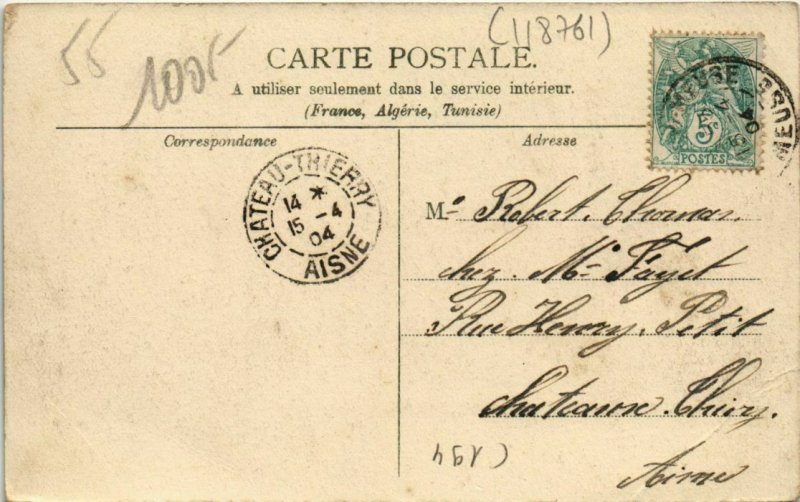 55
1005-
(118761)
CARTE POSTALE.
A utiliser seulement dans le service intérieur.
(France, Algérie, Tunisie)
Correspondance
Adresse
5c
POSTES
MEUSE
CHATEAU-THIERRY
14 *
15 -4
04
AISNE
Mr Robert. Thomas.
chez. Mr Fayet
Rue Henry. Petit
chateaux. Thierry.
Aisne
(194